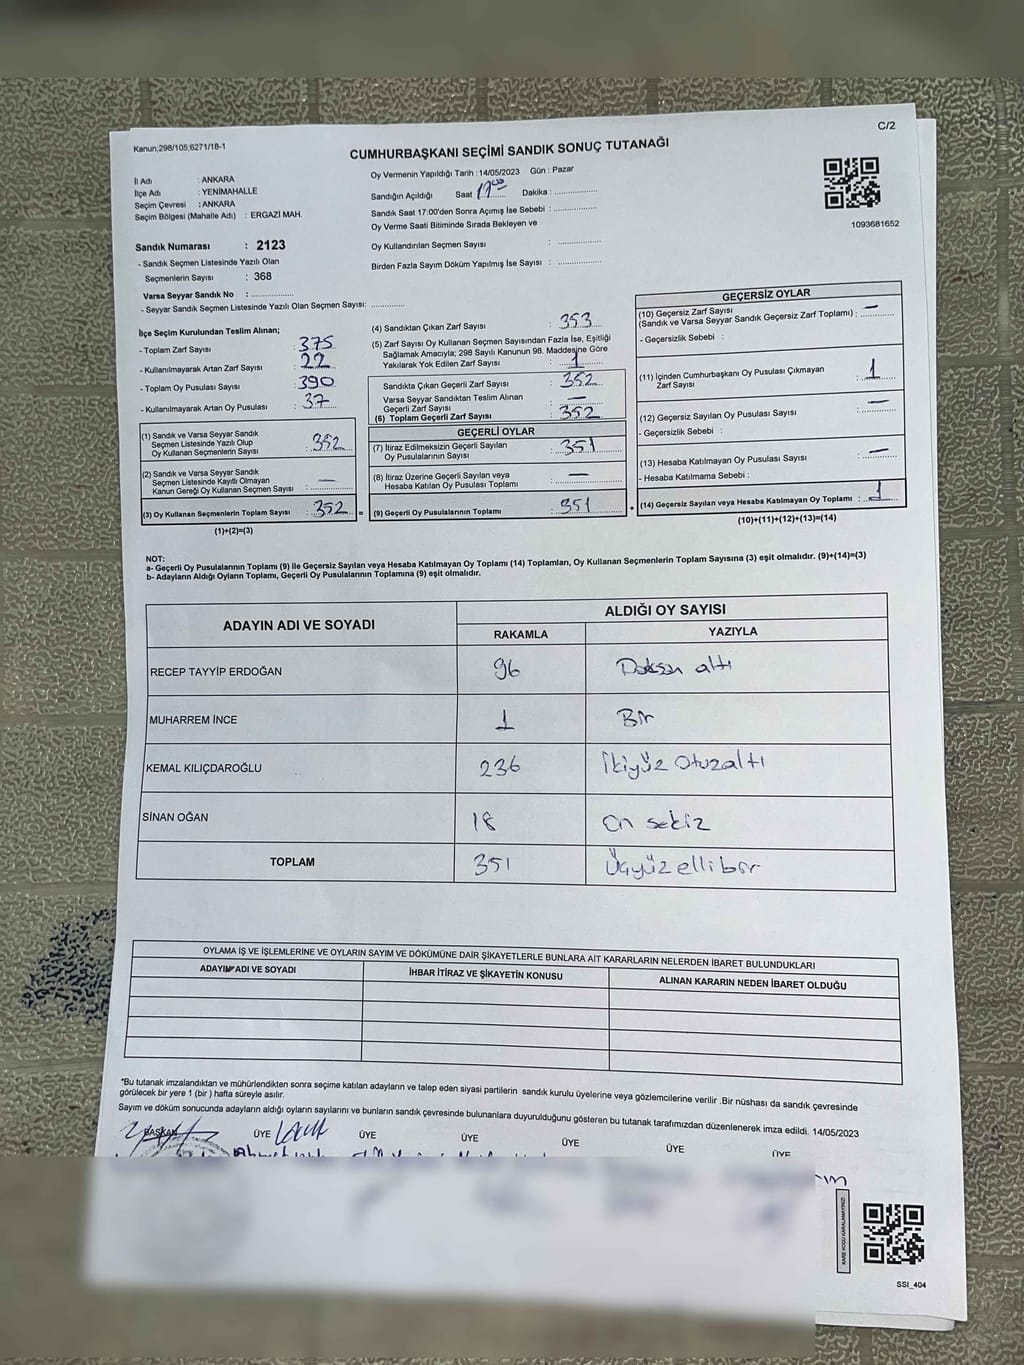 C/2
Kanun;298/105;6271/18-1
CUMHURBAŞKANI SEÇİMİ SANDIK SONUÇ TUTANAĞI
İl Adı : ANKARA
İlçe Adı : YENİMAHALLE
Seçim Çevresi : ANKARA
Seçim Bölgesi (Mahalle Adı) : ERGAZİ MAH.
Sandık Numarası : 2123
- Sandık Seçmen Listesinde Yazılı Olan
Seçmenlerin Sayısı : 368
Varsa Seyyar Sandık No :
- Seyyar Sandık Seçmen Listesinde Yazılı Olan Seçmen Sayısı:
Oy Vermenin Yapıldığı Tarih : 14/05/2023 Gün : Pazar
Sandığın Açıldığı Saat 17:00 Dakika :
Sandık Saat 17:00'den Sonra Açımış İse Sebebi :
Oy Verme Saati Bitiminde Sırada Bekleyen ve
Oy Kullandırılan Seçmen Sayısı :
Birden Fazla Sayım Döküm Yapılmış İse Sayısı :
1093681652
İlçe Seçim Kurulundan Teslim Alınan;
- Toplam Zarf Sayısı : 375
- Kullanılmayarak Artan Zarf Sayısı : 22
- Toplam Oy Pusulası Sayısı : 390
- Kullanılmayarak Artan Oy Pusulası : 37
(1) Sandık ve Varsa Seyyar Sandık
Seçmen Listesinde Yazılı Olup
Oy Kullanan Seçmenlerin Sayısı : 352
(2) Sandık ve Varsa Seyyar Sandık
Seçmen Listesinde Kayıtlı Olmayan
Kanun Gereği Oy Kullanan Seçmen Sayısı : —
(3) Oy Kullanan Seçmenlerin Toplam Sayısı : 352 =
(1)+(2)=(3)
(4) Sandıktan Çıkan Zarf Sayısı : 353
(5) Zarf Sayısı Oy Kullanan Seçmen Sayısından Fazla İse, Eşitliği
Sağlamak Amacıyla; 298 Sayılı Kanunun 98. Maddesine Göre
Yakılarak Yok Edilen Zarf Sayısı : 1
Sandıkta Çıkan Geçerli Zarf Sayısı : 352
Varsa Seyyar Sandıktan Teslim Alınan
Geçerli Zarf Sayısı : —
(6) Toplam Geçerli Zarf Sayısı : 352
GEÇERLİ OYLAR
(7) İtiraz Edilmeksizin Geçerli Sayılan
Oy Pusulalarının Sayısı : 351
(8) İtiraz Üzerine Geçerli Sayılan veya
Hesaba Katılan Oy Pusulası Toplamı : —
(9) Geçerli Oy Pusulalarının Toplamı : 351 +
GEÇERSİZ OYLAR
(10) Geçersiz Zarf Sayısı
(Sandık ve Varsa Seyyar Sandık Geçersiz Zarf Toplamı) : —
- Geçersizlik Sebebi :
(11) İçinden Cumhurbaşkanı Oy Pusulası Çıkmayan
Zarf Sayısı : 1
(12) Geçersiz Sayılan Oy Pusulası Sayısı : —
- Geçersizlik Sebebi :
(13) Hesaba Katılmayan Oy Pusulası Sayısı : —
- Hesaba Katılmama Sebebi :
(14) Geçersiz Sayılan veya Hesaba Katılmayan Oy Toplamı : 1
(10)+(11)+(12)+(13)=(14)
NOT:
a- Geçerli Oy Pusulalarının Toplamı (9) ile Geçersiz Sayılan veya Hesaba Katılmayan Oy Toplamı (14) Toplamları, Oy Kullanan Seçmenlerin Toplam Sayısına (3) eşit olmalıdır. (9)+(14)=(3)
b- Adayların Aldığı Oyların Toplamı, Geçerli Oy Pusulalarının Toplamına (9) eşit olmalıdır.
ADAYIN ADI VE SOYADI ALDIĞI OY SAYISI
RAKAMLA YAZIYLA
RECEP TAYYİP ERDOĞAN 96 Doksan altı
MUHARREM İNCE 1 Bir
KEMAL KILIÇDAROĞLU 236 İkiyüz Otuzaltı
SİNAN OĞAN 18 On sekiz
TOPLAM 351 Üçyüz elli bir
OYLAMA İŞ VE İŞLEMLERİNE VE OYLARIN SAYIM VE DÖKÜMÜNE DAİR ŞİKAYETLERLE BUNLARA AİT KARARLARIN NELERDEN İBARET BULUNDUKLARI
ADAYIN ADI VE SOYADI İHBAR İTİRAZ VE ŞİKAYETİN KONUSU ALINAN KARARIN NEDEN İBARET OLDUĞU
*Bu tutanak imzalandıktan ve mühürlendikten sonra seçime katılan adayların ve talep eden siyasi partilerin sandık kurulu üyelerine veya gözlemcilerine verilir .Bir nüshası da sandık çevresinde
görülecek bir yere 1 (bir ) hafta süreyle asılır.
Sayım ve döküm sonucunda adayların aldığı oyların sayılarını ve bunların sandık çevresinde bulunanlara duyurulduğunu gösteren bu tutanak tarafımızdan düzenlenerek imza edildi. 14/05/2023
BAŞKAN ÜYE ÜYE ÜYE ÜYE ÜYE ÜYE
KARE KODU KARALAMAYINIZ!
SSI_404